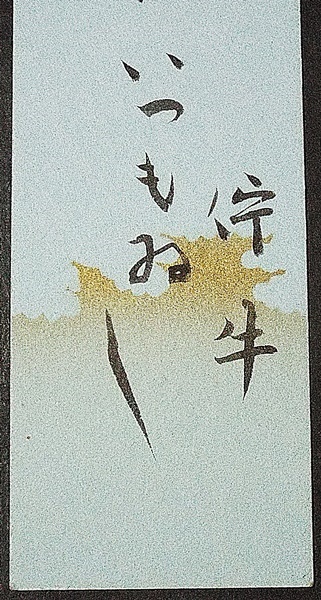 佇牛
いつもゐし